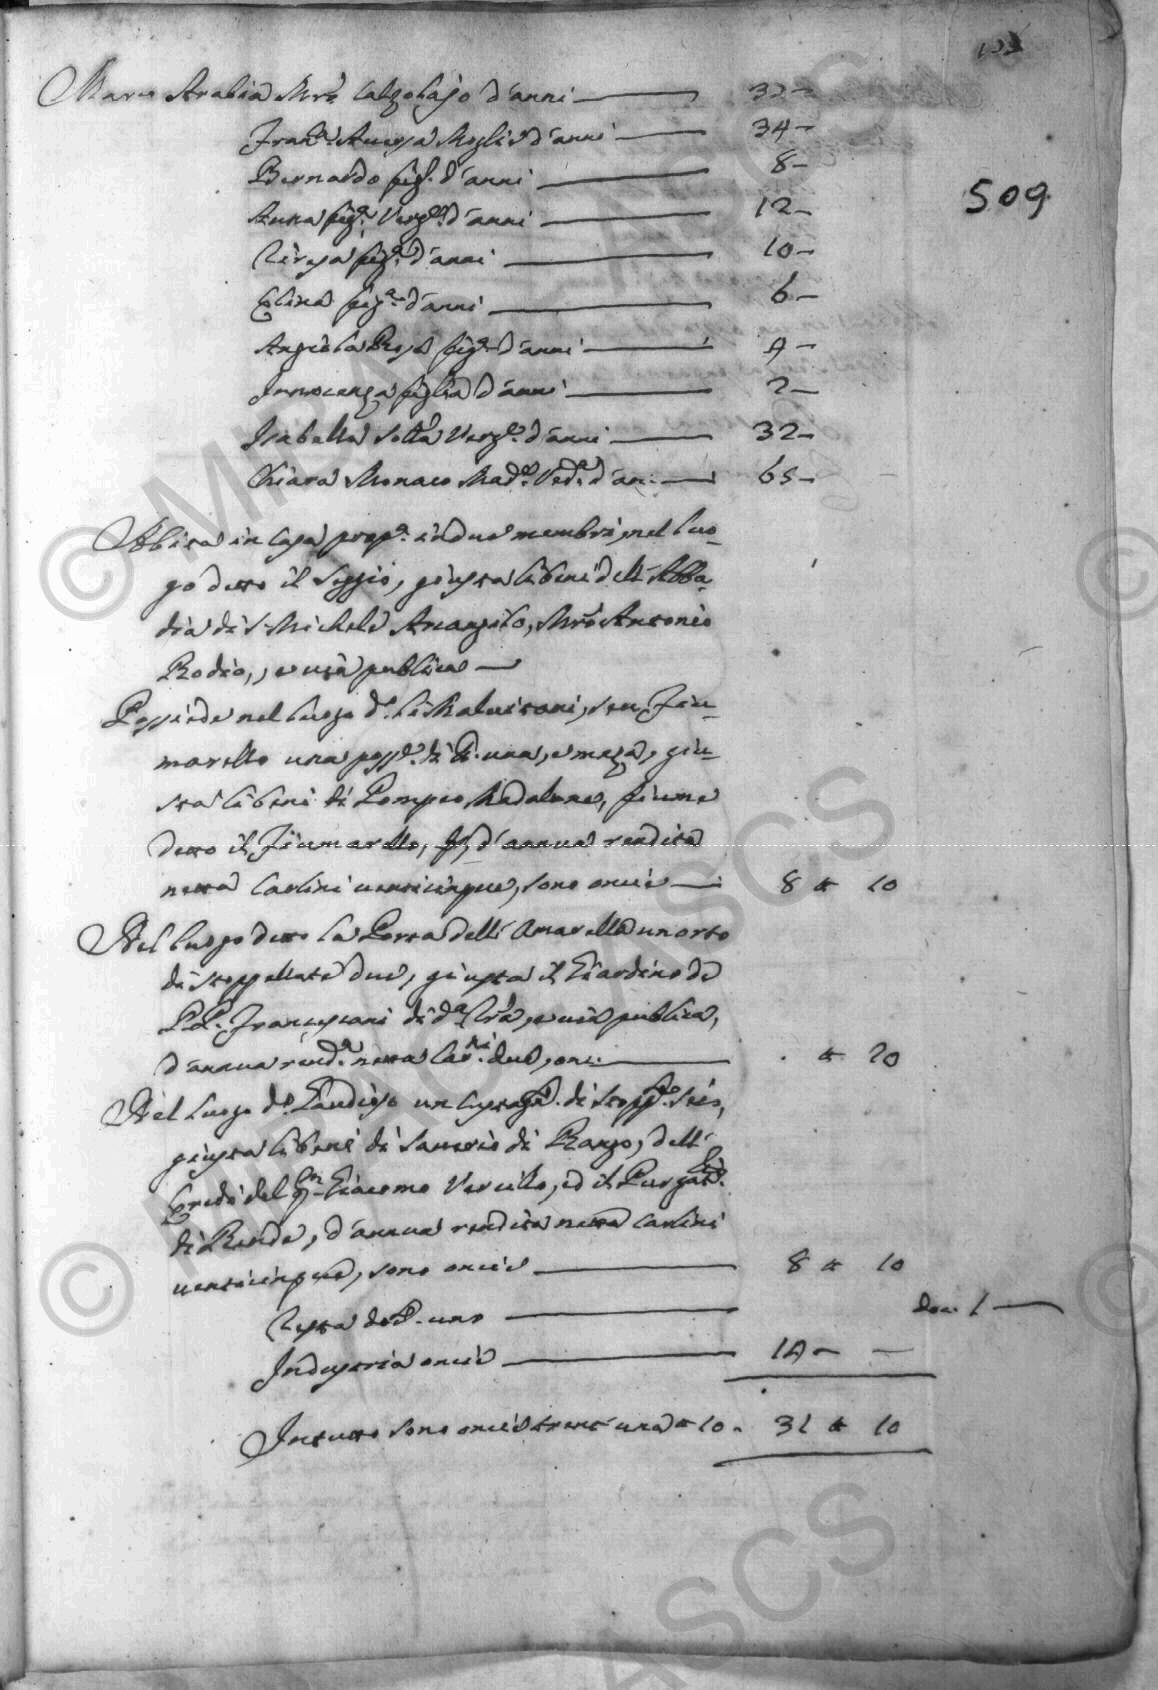 509
Marco Arabia Mro Calzolajo d'anni 32
Franca Aversa Moglie d'anni 34
Bernardo figo d'anni 8
Anna figa Verge d'anni 12
Teresa figa d'anni 10
figa d'anni 6
Angiola Rosa figa d'anni 4
Innocenza figlia d'anni 2
Isabella Verge d'anni 32
Chiara Monaco Made Veda d'an: 65
Abita in casa propa in due membri, nel luo-
go detto il Seggio, giusta li beni dell'Abba-
dia di S. Michele Arcangelo, Mro Antonio
Rodio, e via publica
Possiede nel luogo do li seu Fiu-
marello una posse di una, e meza, giu-
sta li beni di Pompeo Madalone, fiume
detto il Fiumarello, d'annua rendita
netta Carlini venticinque, sono oncie 8 10
Nel luogo detto la Porta delli Amarelli un orto
di stoppellate due, giusta il Giardino de
PP. Francescani di da Trà, e via publica,
d'annua renda netta Carni due, on: 20
Nel luogo do Gaudioso un di stoppe sei,
giusta li beni di Saverio di Ranzo, delli
Eredi del qm Giacomo Vercillo, ed il Purgario
di Rende, d'annua rendita netta Carlini
venticinque, sono oncie 8 10
Testa do uno doc. 1
Industria oncie 14
Intutto sono oncie trent'una 10. 31 10